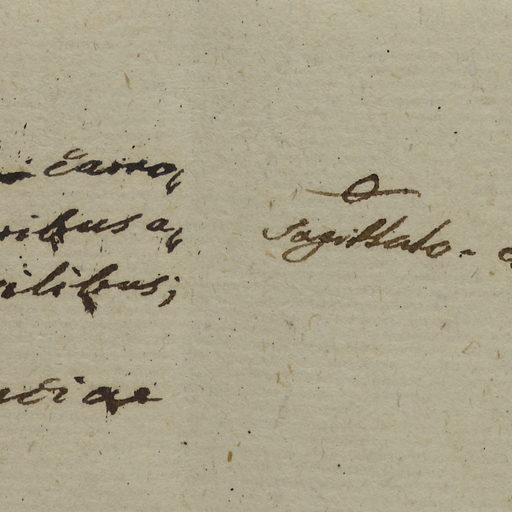 carno„
ribus a„
ilibus;
ciae
Sagittato-